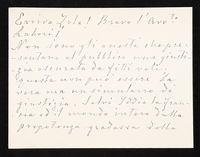 Evviva Zola! Bravo l'Avv.to
Labori!
Non sono gli onesti che pre-
sentano al pubblico una giusti-
zia oscurata da fitti veli.
Questa non può essere la
vera ma un simulacro di
giustizia. Salvi Iddio la Fran-
cia ed il mondo intero dalla
prepotenza gradassa della